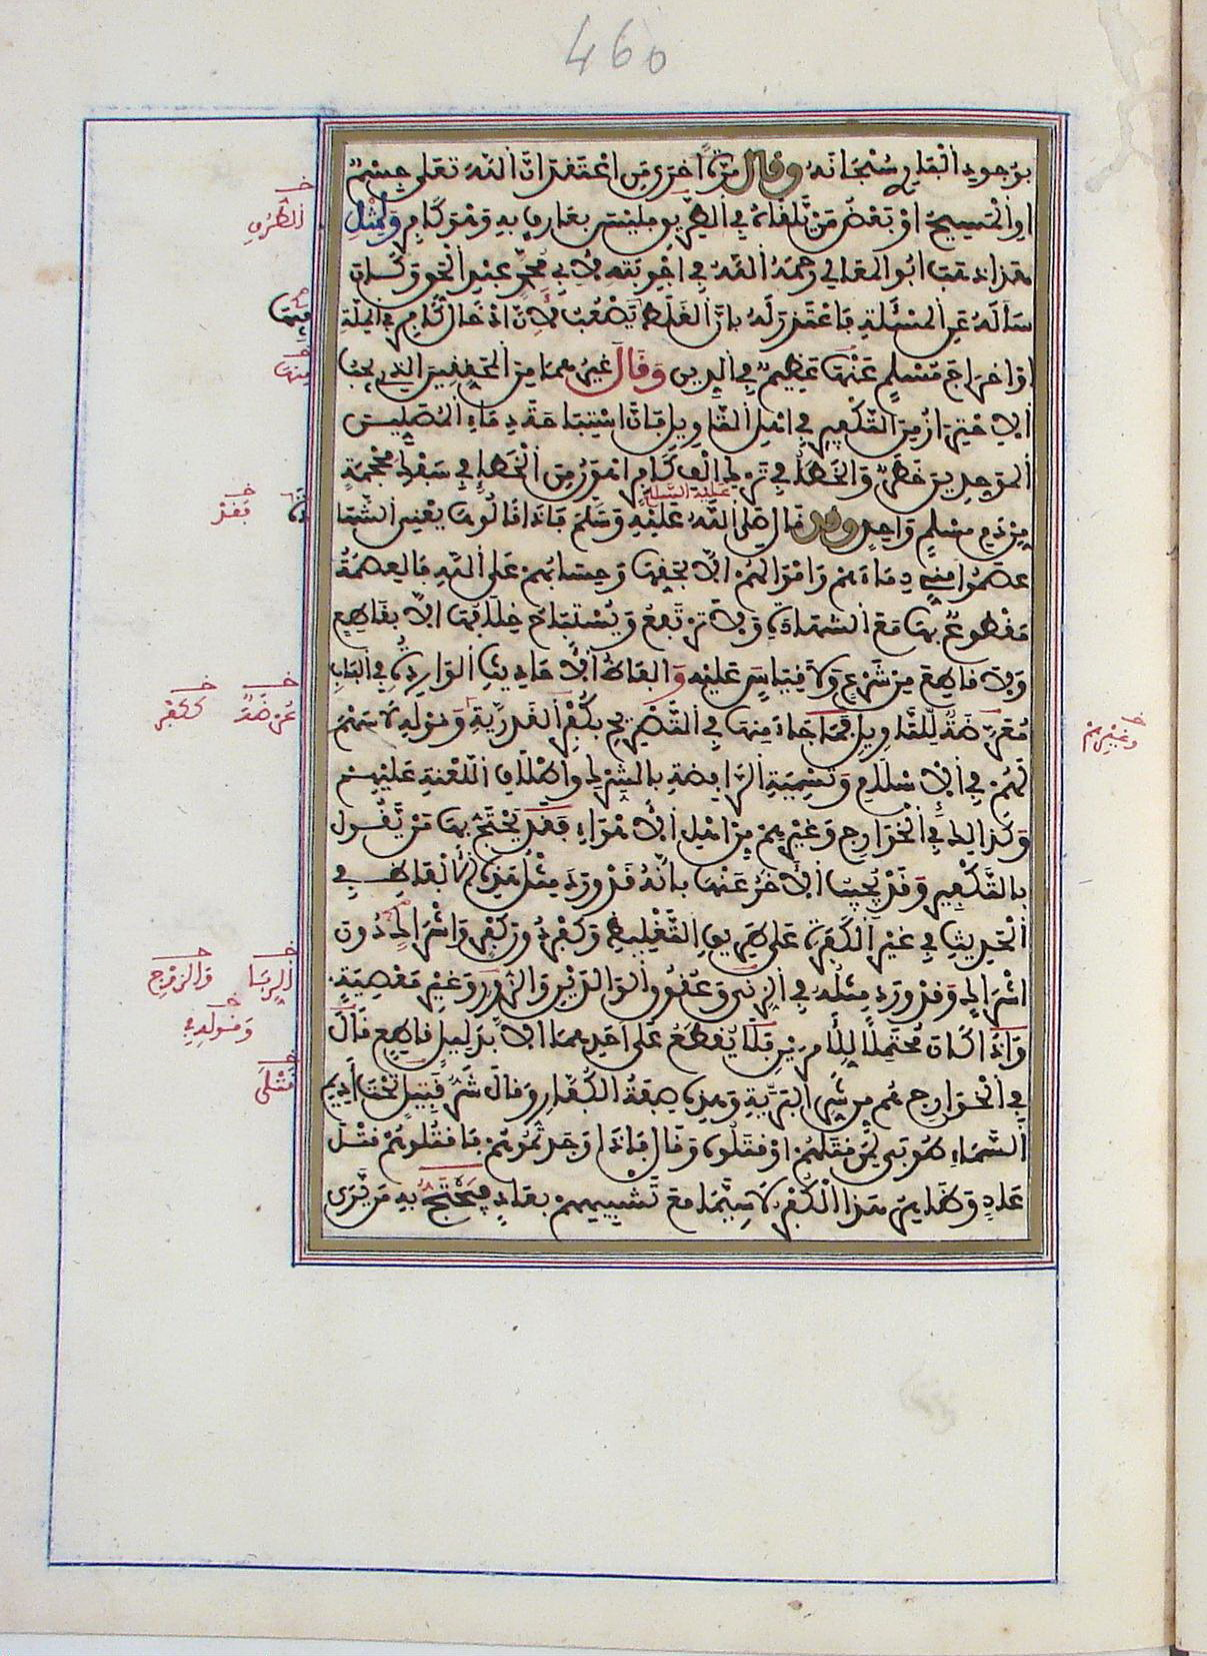 460
بوجود الباري سبحانه وقال مرة اخرى من اعتقد ان الله تعلى جسم
او المسيح او بعض من يلقاه في الطريق فليس بعارف به وهو كافر ولمثل
هذا ذهب ابو المعالي رحمه الله في اجوبته لابي محمد عبد الحق وكان
سأله عن المسئلة فاعتذر له بان الغلط يصعب لان ادخال كافر في الملة
او اخراج مسلم عنها عظيم في الدين وقال غيرهما من المحققين الذي يجب
الاحتراز من التكفير في اهل التاويل فان استباحة دماء المصلين
الموحدين خطر والخطأ في ترك الف كافر اهون من الخطإ في سفك محجمة
عليه السلام
من دم مسلم واحد وقد قال صلى الله عليه وسلم فاذا قالوها يعني الشها
دة
عصموا مني دماءهم واموالهم الا بحقها وحسابهم على الله فالعصمة
مقطوع بها مع الشهادة ولا ترتفع ويستباح خلافها الا بقاطع
ولا قاطع من شرع ولا قياس عليه والفاظ الاحاديث الواردة في الباب
معرضة للتاويل فما جاء منها في التصريح بكفر القدرية وقوله لا سهم
لهم في الاسلام وتسمية الرافضة بالشرك واطلاق اللعنة عليهم
وكذالك في الخوارج وغيرهم من اهل الاهواء فقد يحتج بها من يقول
بالتكفير وقد يجيب الاخر عنها بانه قد ورد مثل هذه الالفاظ في
الحديث في غير الكفرة على طريق التغليظ وكفر دون كفر واشراك دون
اشراك وقد ورد مثله في الزنى وعقوق الوالدين والزور وغير معصية
واذا كان محتملا للامرين فلا يقطع على احدهما الا بدليل قاطع قال
في الخوارج هم من شر البرية وهذه صفة الكفار وقال شر قتيل تحت اديم
السماء طوبى لمن قتلهم او قتلوه وقال فاذا وجدتموهم فاقتلوهم قتل
عاد وظاهر هذا الكفر لا سيما مع تشبيههم بعاد فيحتج به من يرى
الطرق
فيها
منها
فقد
عرضة
ككفر
وغيرهم
الربا
والزوج
وقوله في
قتلى